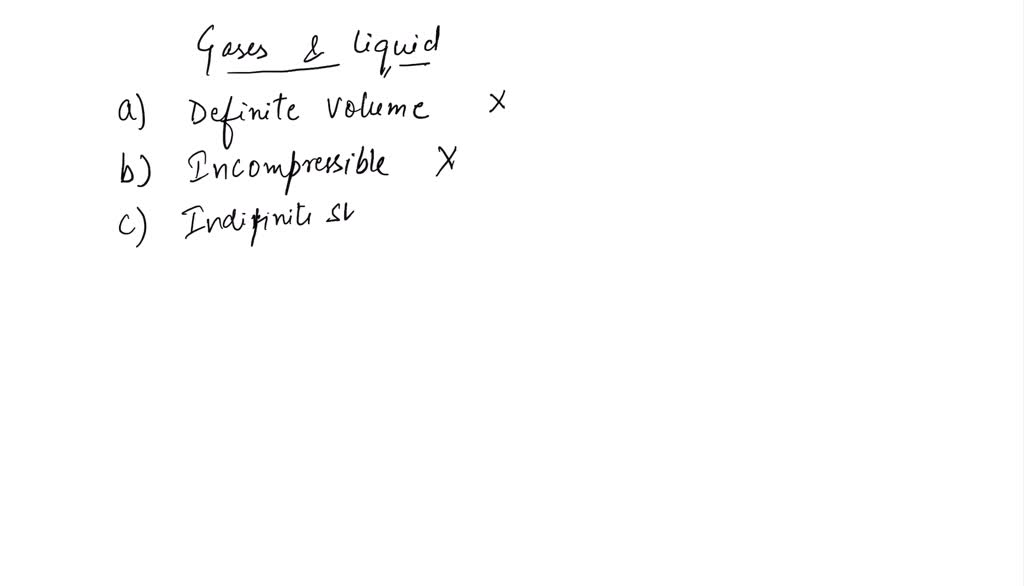 Gases & liquid
a) Definite volume X
b) Incompressible X
c) Indifinite